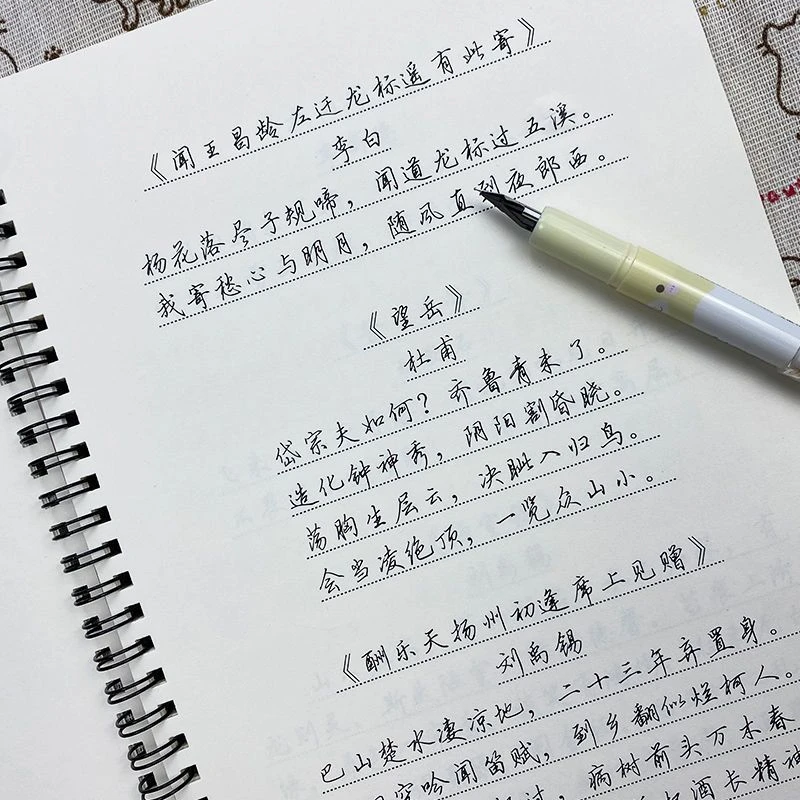 《闻王昌龄左迁龙标遥有此寄》
李白
杨花落尽子规啼，闻道龙标过五溪。
我寄愁心与明月，随风直到夜郎西。
《望岳》
杜甫
岱宗夫如何？齐鲁青未了。
造化钟神秀，阴阳割昏晓。
荡胸生层云，决眦入归鸟。
会当凌绝顶，一览众山小。
《酬乐天扬州初逢席上见赠》
刘禹锡
巴山楚水凄凉地，二十三年弃置身。
空吟闻笛赋，到乡翻似烂柯人。
过，病树前头万木春
酒长精神